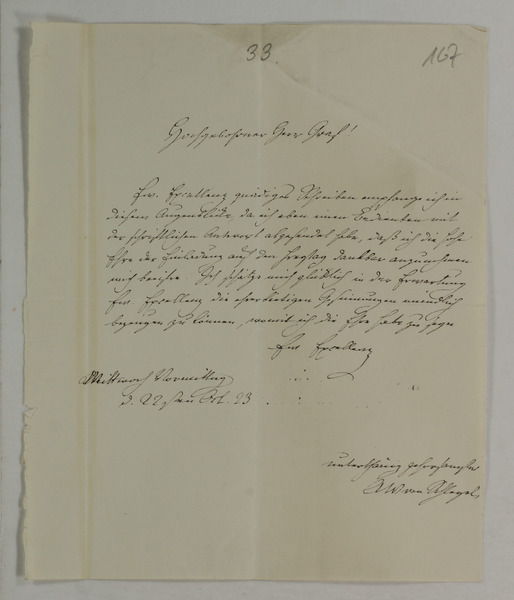 33.
167
Hochgebohrner Herr Graf!
Ew. Excellenz gnädiges Schreiben empfange ich in
diesem Augenblicke, da ich eben einen Bedienten mit
der schriftlichen Antwort abgesendet habe, daß ich die hohe
Ehre der Einladung auf den Freytag dankbar anzunehmen
mich beeifre. Ich schätze mich glücklich in der Erwartung
Ew. Excellenz die ehrerbietigen Gesinnungen mündlich
bezeugen zu können, womit ich die Ehre habe zu seyn
Ew. Excellenz
Mittwoch Vormittag
d. 22sten Oct. 23.
unterthänig gehorsamster
AW von Schlegel